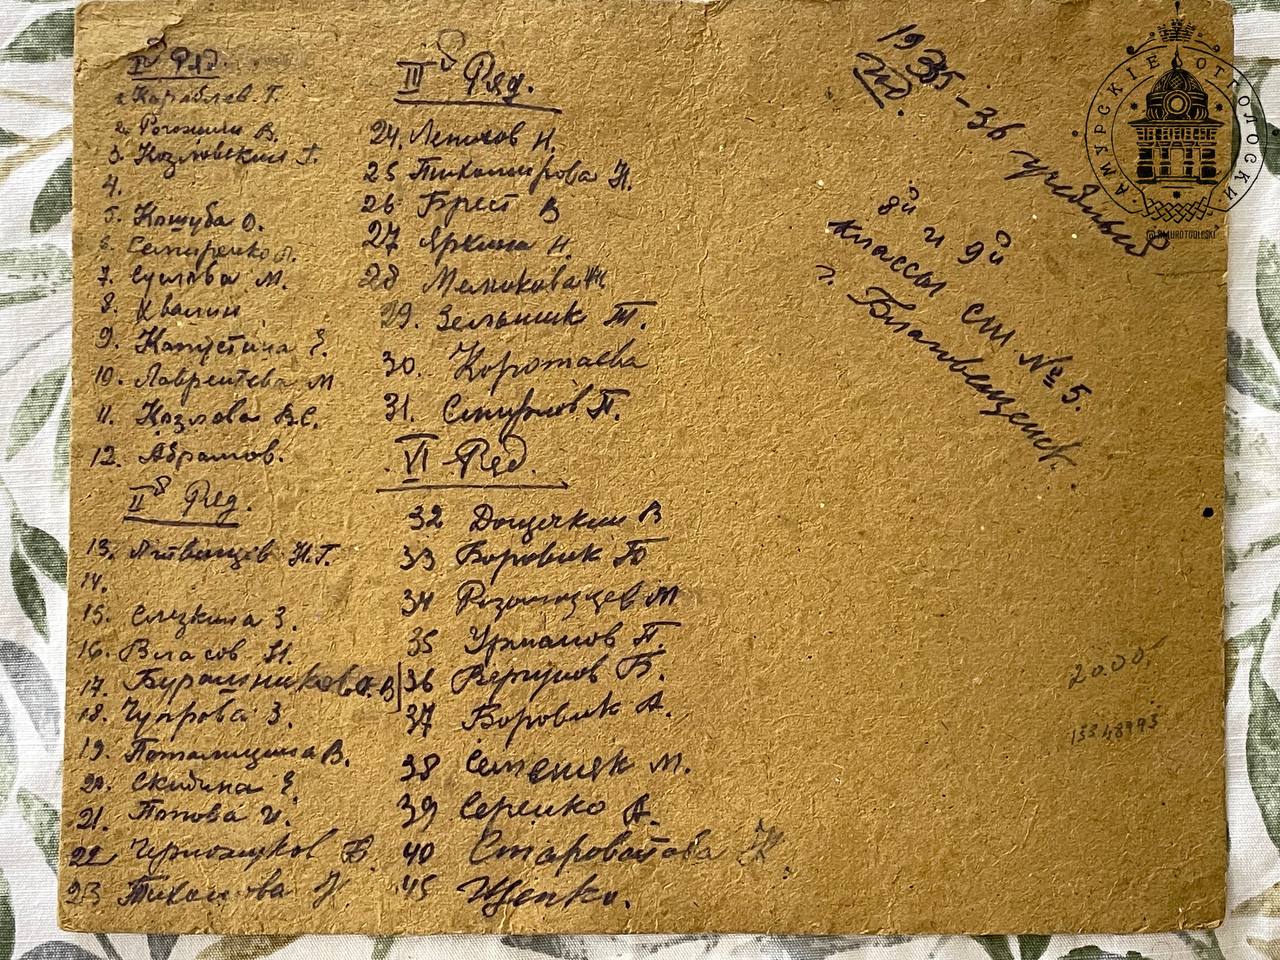 I й Ряд.
1. Кораблев Г.
2. Рогожин В.
3. Козловский Г.
4.
5. Кашуба О.
6. Семиренко Л.
7. Суслова М.
8. Хвалин
9. Капустина Е.
10. Лаврентева М
11. Козлова В.С.
12. Абрамов.
II й Ряд.
13. Литвинцев Н.Г.
14.
15. Слузкина З.
16. Власов Н.
17. Бурашникова В
18. Чупрова З.
19. Потаницина В.
20. Скидина Е.
21. Попова И.
22 В.
23 Н
III й Ряд.
24. Н.
25 Тихомирова Н.
26 Брест В
27 Яркина Н.
28 Меликова
29. Зельманик Т.
30. Коротаева
31. Смирнов П.
VI Ряд.
32 Дощечкин В
33 Боровик Б
34 М
35 Урманов П.
36 Вершков Б.
37 Боровик А.
38 Семеняк М.
39 Серенко А.
40 Староватова Н.
45 Щепко.
1935-36 учебный
год.
8й и 9й
классы СШ № 5.
г. Благовещенск.
2000
АМУРСКІЕ ОТГОЛОСКИ
@AMUROTGOLOSKI